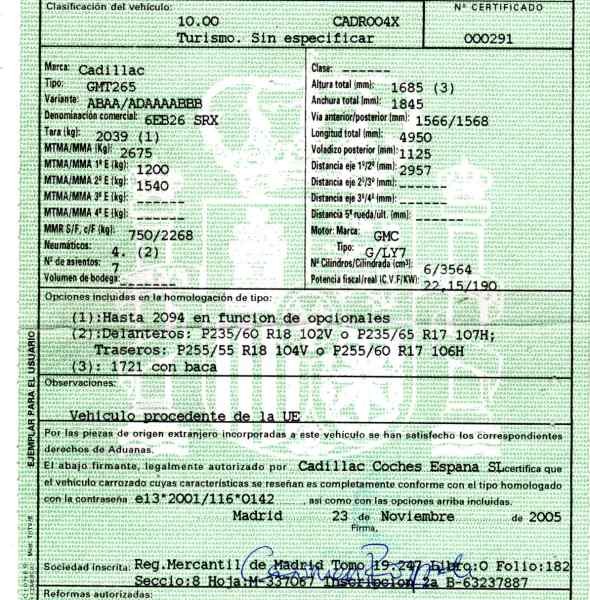 Clasificación del vehículo:
10.00 CADR004X
Turismo. Sin especificar
Nº CERTIFICADO
000291
Marca: Cadillac
Tipo: GMT265
Variante: ABAA/ADAAAABBB
Denominación comercial: 6EB26 SRX
Tara (kg): 2039 (1)
MTMA/MMA (Kg): 2675
MTMA/MMA 1º E (kg): 1200
MTMA/MMA 2º E (kg): 1540
MTMA/MMA 3º E (kg): ------
MTMA/MMA 4º E (kg): ------
MMR S/F, c/F (kg): 750/2268
Neumáticos: 4. (2)
Nº de asientos: 7
Volumen de bodega: ------
Clase: ------
Altura total (mm): 1685 (3)
Anchura total (mm): 1845
Vía anterior/posterior (mm): 1566/1568
Longitud total (mm): 4950
Voladizo posterior (mm): 1125
Distancia eje 1º/2º (mm): 2957
Distancia eje 2º/3º (mm): ------
Distancia eje 3º/4º (mm): ------
Distancia 5ª rueda/ult. (mm): ------
Motor: Marca: GMC
Tipo: G/LY7
Nº Cilindros/Cilindrada (cm³): 6/3564
Potencia fiscal/real (C.V.F/KW): 22,15/190
Opciones incluidas en la homologación de tipo:
(1):Hasta 2094 en funcion de opcionales
(2):Delanteros: P235/60 R18 102V o P235/65 R17 107H;
Traseros: P255/55 R18 104V o P255/60 R17 106H
(3): 1721 con baca
Observaciones:
Vehiculo procedente de la UE
Por las piezas de origen extranjero incorporadas a este vehículo se han satisfecho los correspondientes
derechos de Aduanas.
El abajo firmante, legalmente autorizado por Cadillac Coches Espana SL certifica que
el vehículo carrozado cuyas características se reseñan es completamente conforme con el tipo homologado
con la contraseña e13*2001/116*0142 , así como con las opciones arriba incluidas.
Madrid 23 de Noviembre de 2005
Firma,
Sociedad inscrita: Reg.Mercantil de Madrid Tomo 19.247 Libro:O Folio:182
Seccio:8 Hoja:M-337067 Inscripcion 2a B-63237887
Reformas autorizadas:
EJEMPLAR PARA EL USUARIO